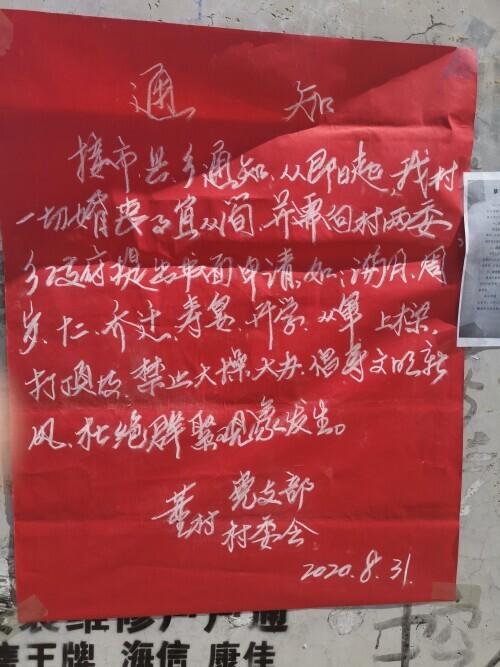 通 知
接市、县、乡通知,从即日起,我村
一切婚丧事宜从简,并事向村两委
乡政府提出书面申请,如:满月、周
岁、十二、乔迁、寿宴、开学、从军、上梁、
打顶板,禁止大燥、大办,倡导文明新
风,杜绝群聚现象发生。
董村 党支部
村委会
2020.8.31.
装维修户户通
王牌 海信 康佳